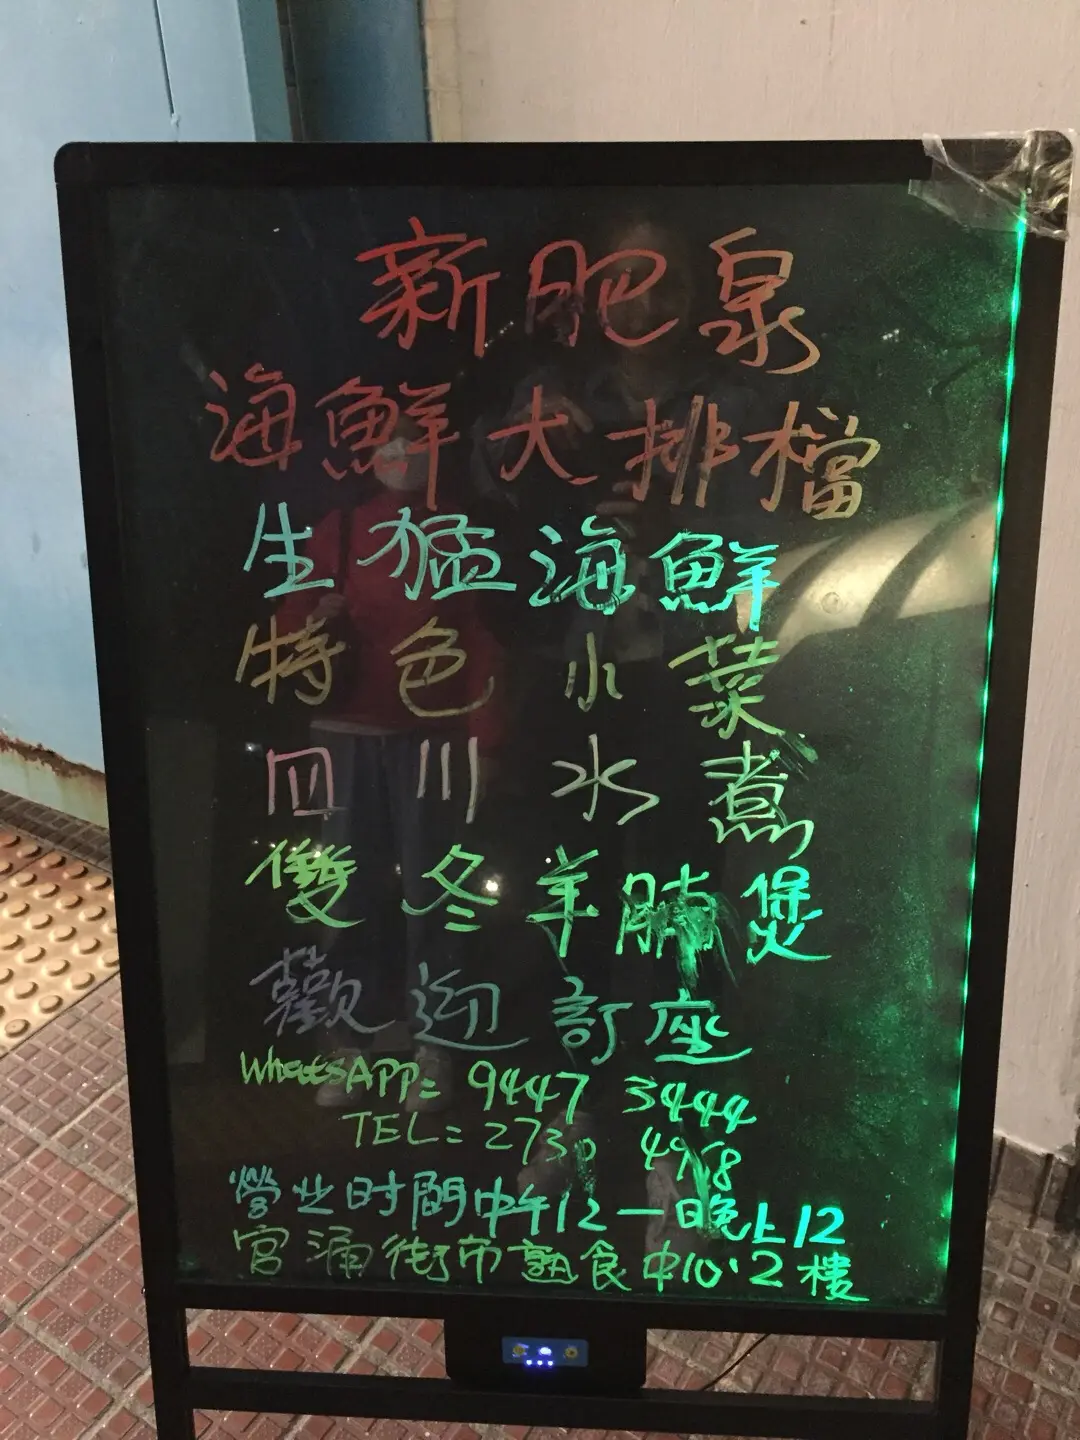 新肥泉
海鮮大排檔
生猛海鮮
特色小菜
四川水煮
雙冬羊腩煲
歡迎訂座
WhatsAPP: 9447 3444
TEL: 2730 4968
營业时間中午12一晚上12
官涌街市熟食中心2樓